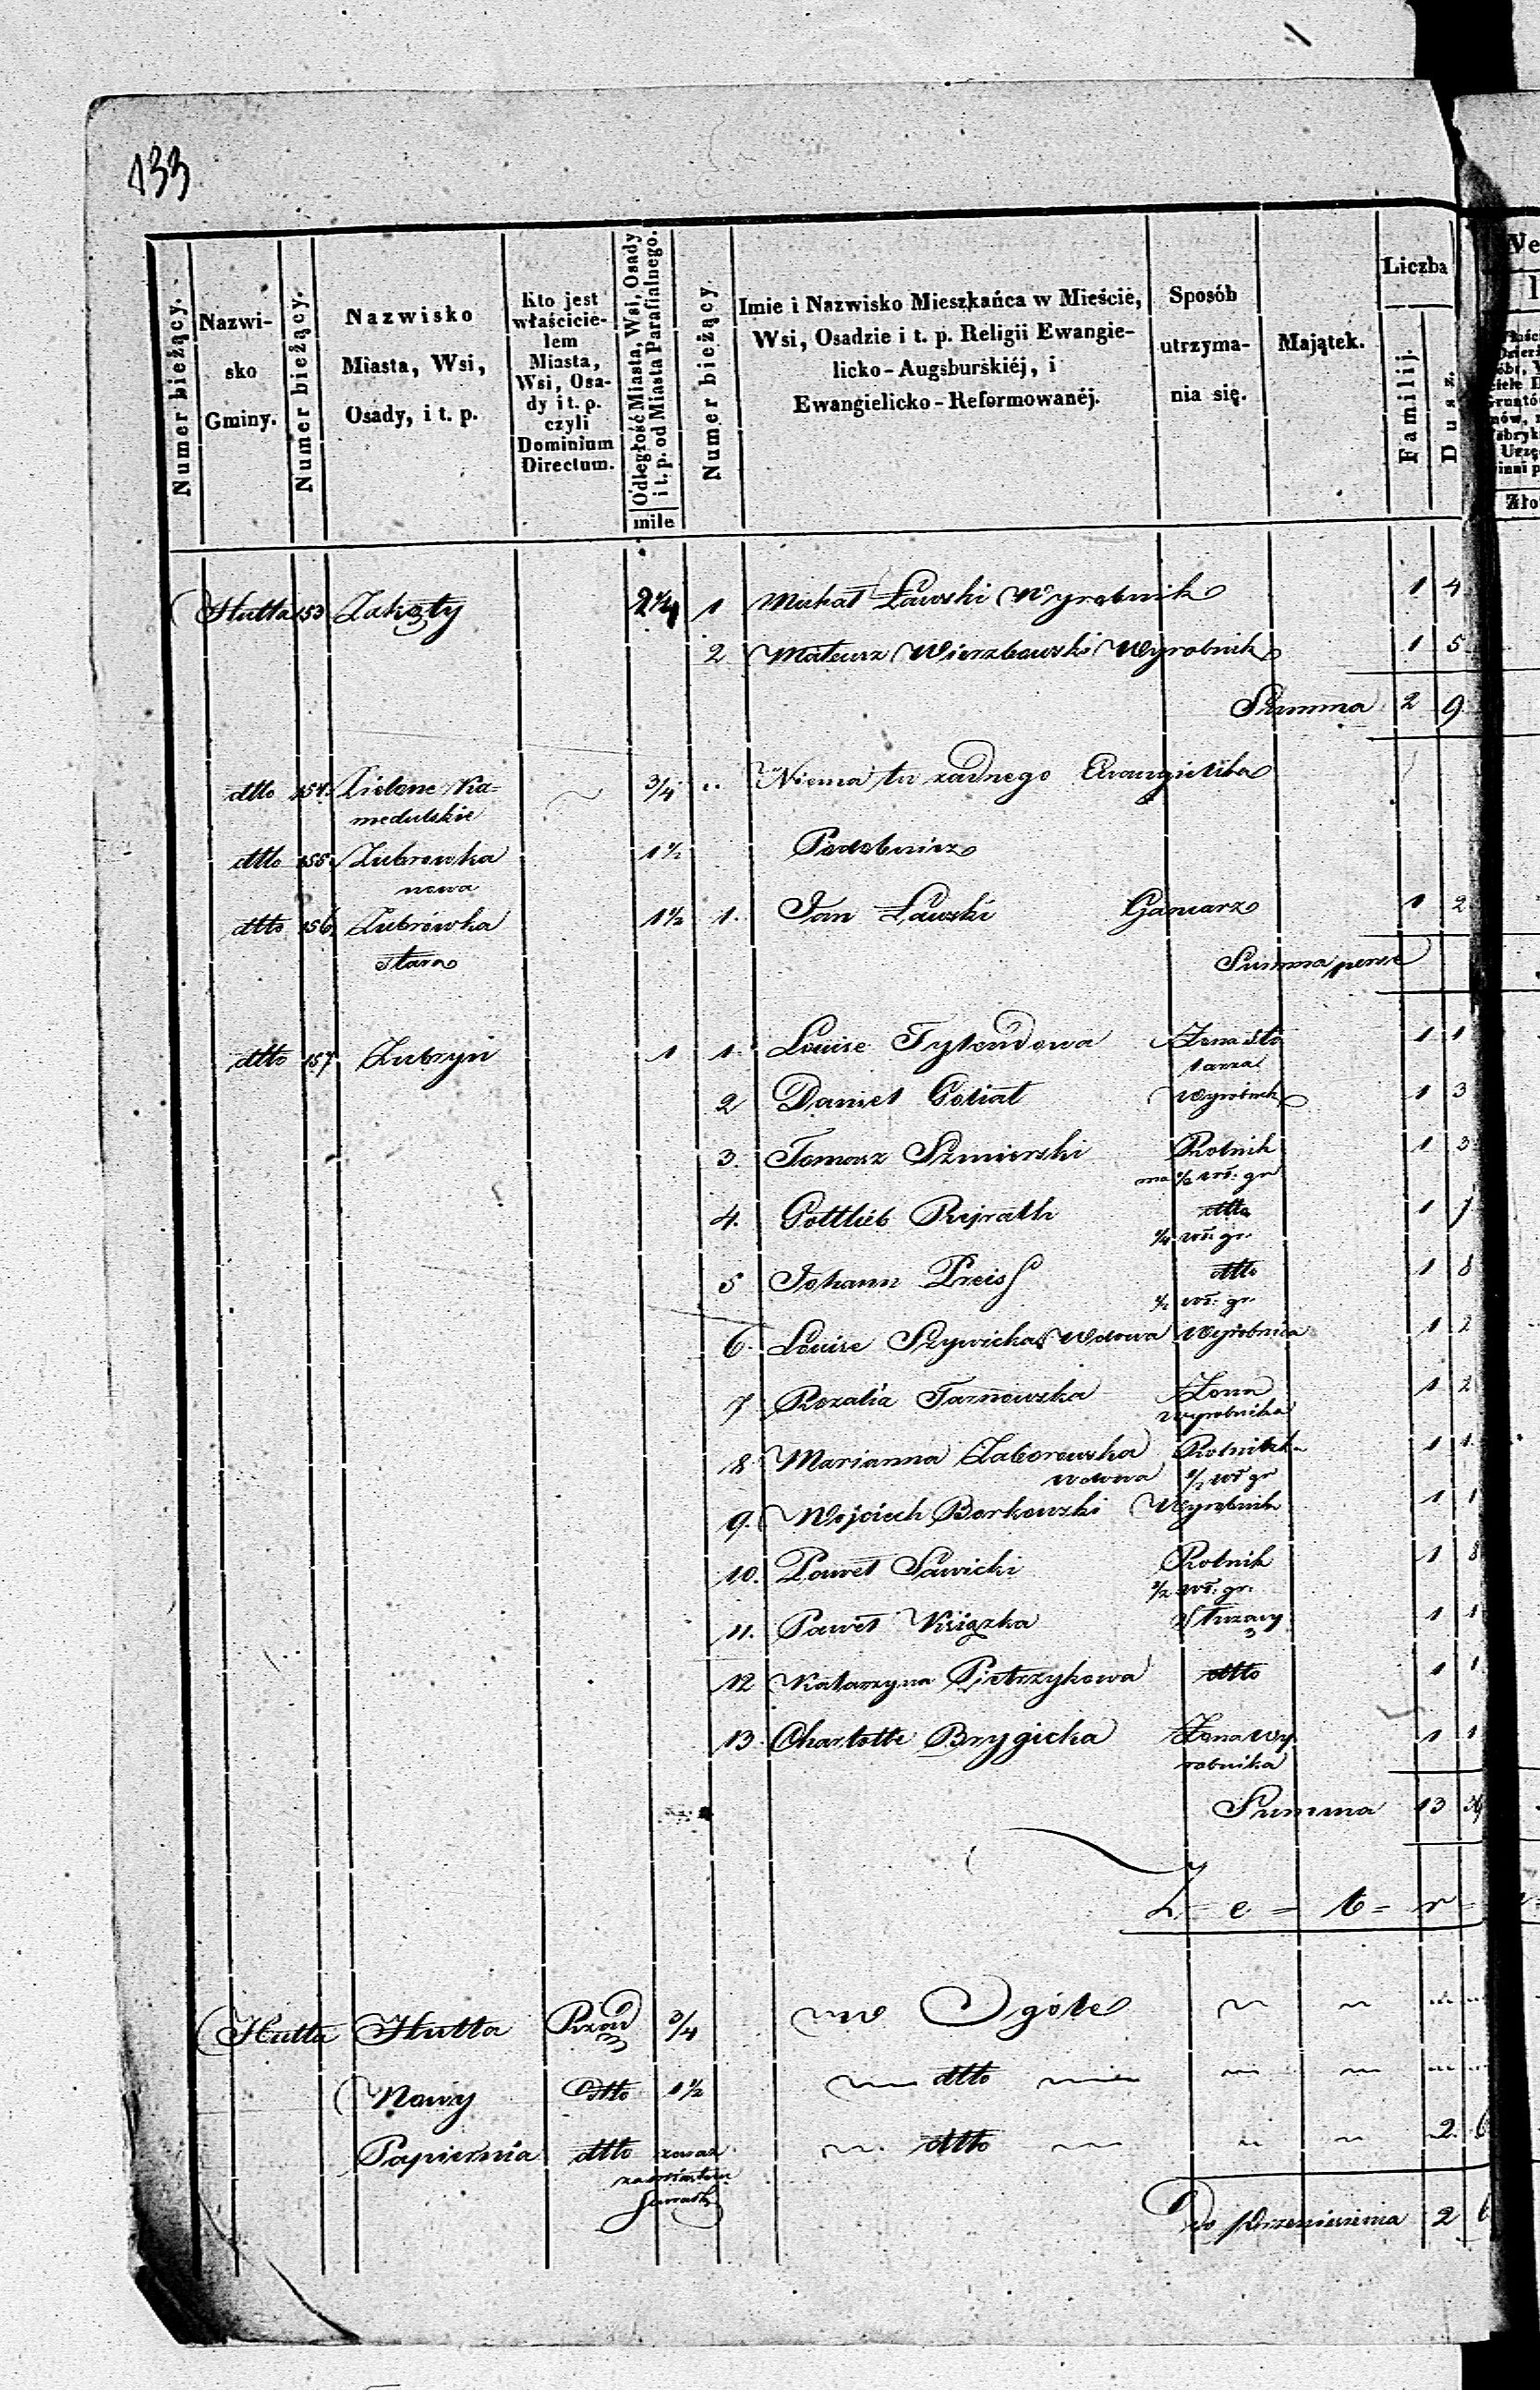 133
Numer bieżący.
Nazwi-
sko
Gminy.
Numer bieżący.
Nazwisko
Miasta, Wsi,
Osady, i t. p.
Kto jest
właścicie-
lem
Miasta,
Wsi, Osa-
dy i t. p.
czyli
Dominium
Directum.
Odległość Miasta, Wsi, Osady
i t. p. od Miasta Parafialnego.
mile
Numer bieżący
Imie i Nazwisko Mieszkańca w Mieście,
Wsi, Osadzie i t. p. Religii Ewangie-
licko-Augsburskiéj, i
Ewangielicko-Reformowanéj.
Sposób
utrzyma-
nia się.
Majątek.
Liczba
Familij.
Dusz.
Hutta 153 Zakąty 2 1/4 1 Michał Ławski Wyrobnik 1 4
2 Mateusz Wierzbowski Wyrobnik 1 5
Summa 2 9
dtto 154. Zielone Ka= 3/4 Niema tu żadnego Ewangielika
medulskie
dtto 155. Zubrowka 1 1/2 Podobnież
nowa
dtto 156. Zubrówka 1 1/2 1. Jan Ławski Gancarz 1 2
stara
Summa perse
dtto 157 Zubryn 1 1. Louise Tylendowa Żona sto 1 1
larza
2 Daniel Goliat Wyrobnik 1 3
3. Tomasz Szmierski Rolnik 1 3
ma 1/2 wł. gr
4. Gottlieb Rejrath dtto 1 7
1/4 wł. gr.
5 Johann Preiss dtto 1 8
1/2 wł. gr.
6. Louise Szywicka Wdowa Wyrobnica 1 2
7 Rozalia Tarnowska Żona 1 2
wyrobnika
8 Marianna Zaborowska Rolniczka 1 1
wdowa 1/2 wł gr
9. Wojciech Borkowski Wyrobnik 1 1
10. Paweł Sawicki Rolnik 1 8
1/2 wł. gr.
11. Paweł Książka Służący 1 1
12 Katarzyna Pietrzykowa dtto 1 1
13. Charlotte Brygicka Żona wy 1 1
robnika
Summa 13
Z = e = b = r =
Hutta Hutta Rząd 3/4 w Ogóle
Nowy Dtto 1 1/2 dtto
Papiernia dtto zaraz dtto 2 6
za miastem
Do przeniesienia 2 6